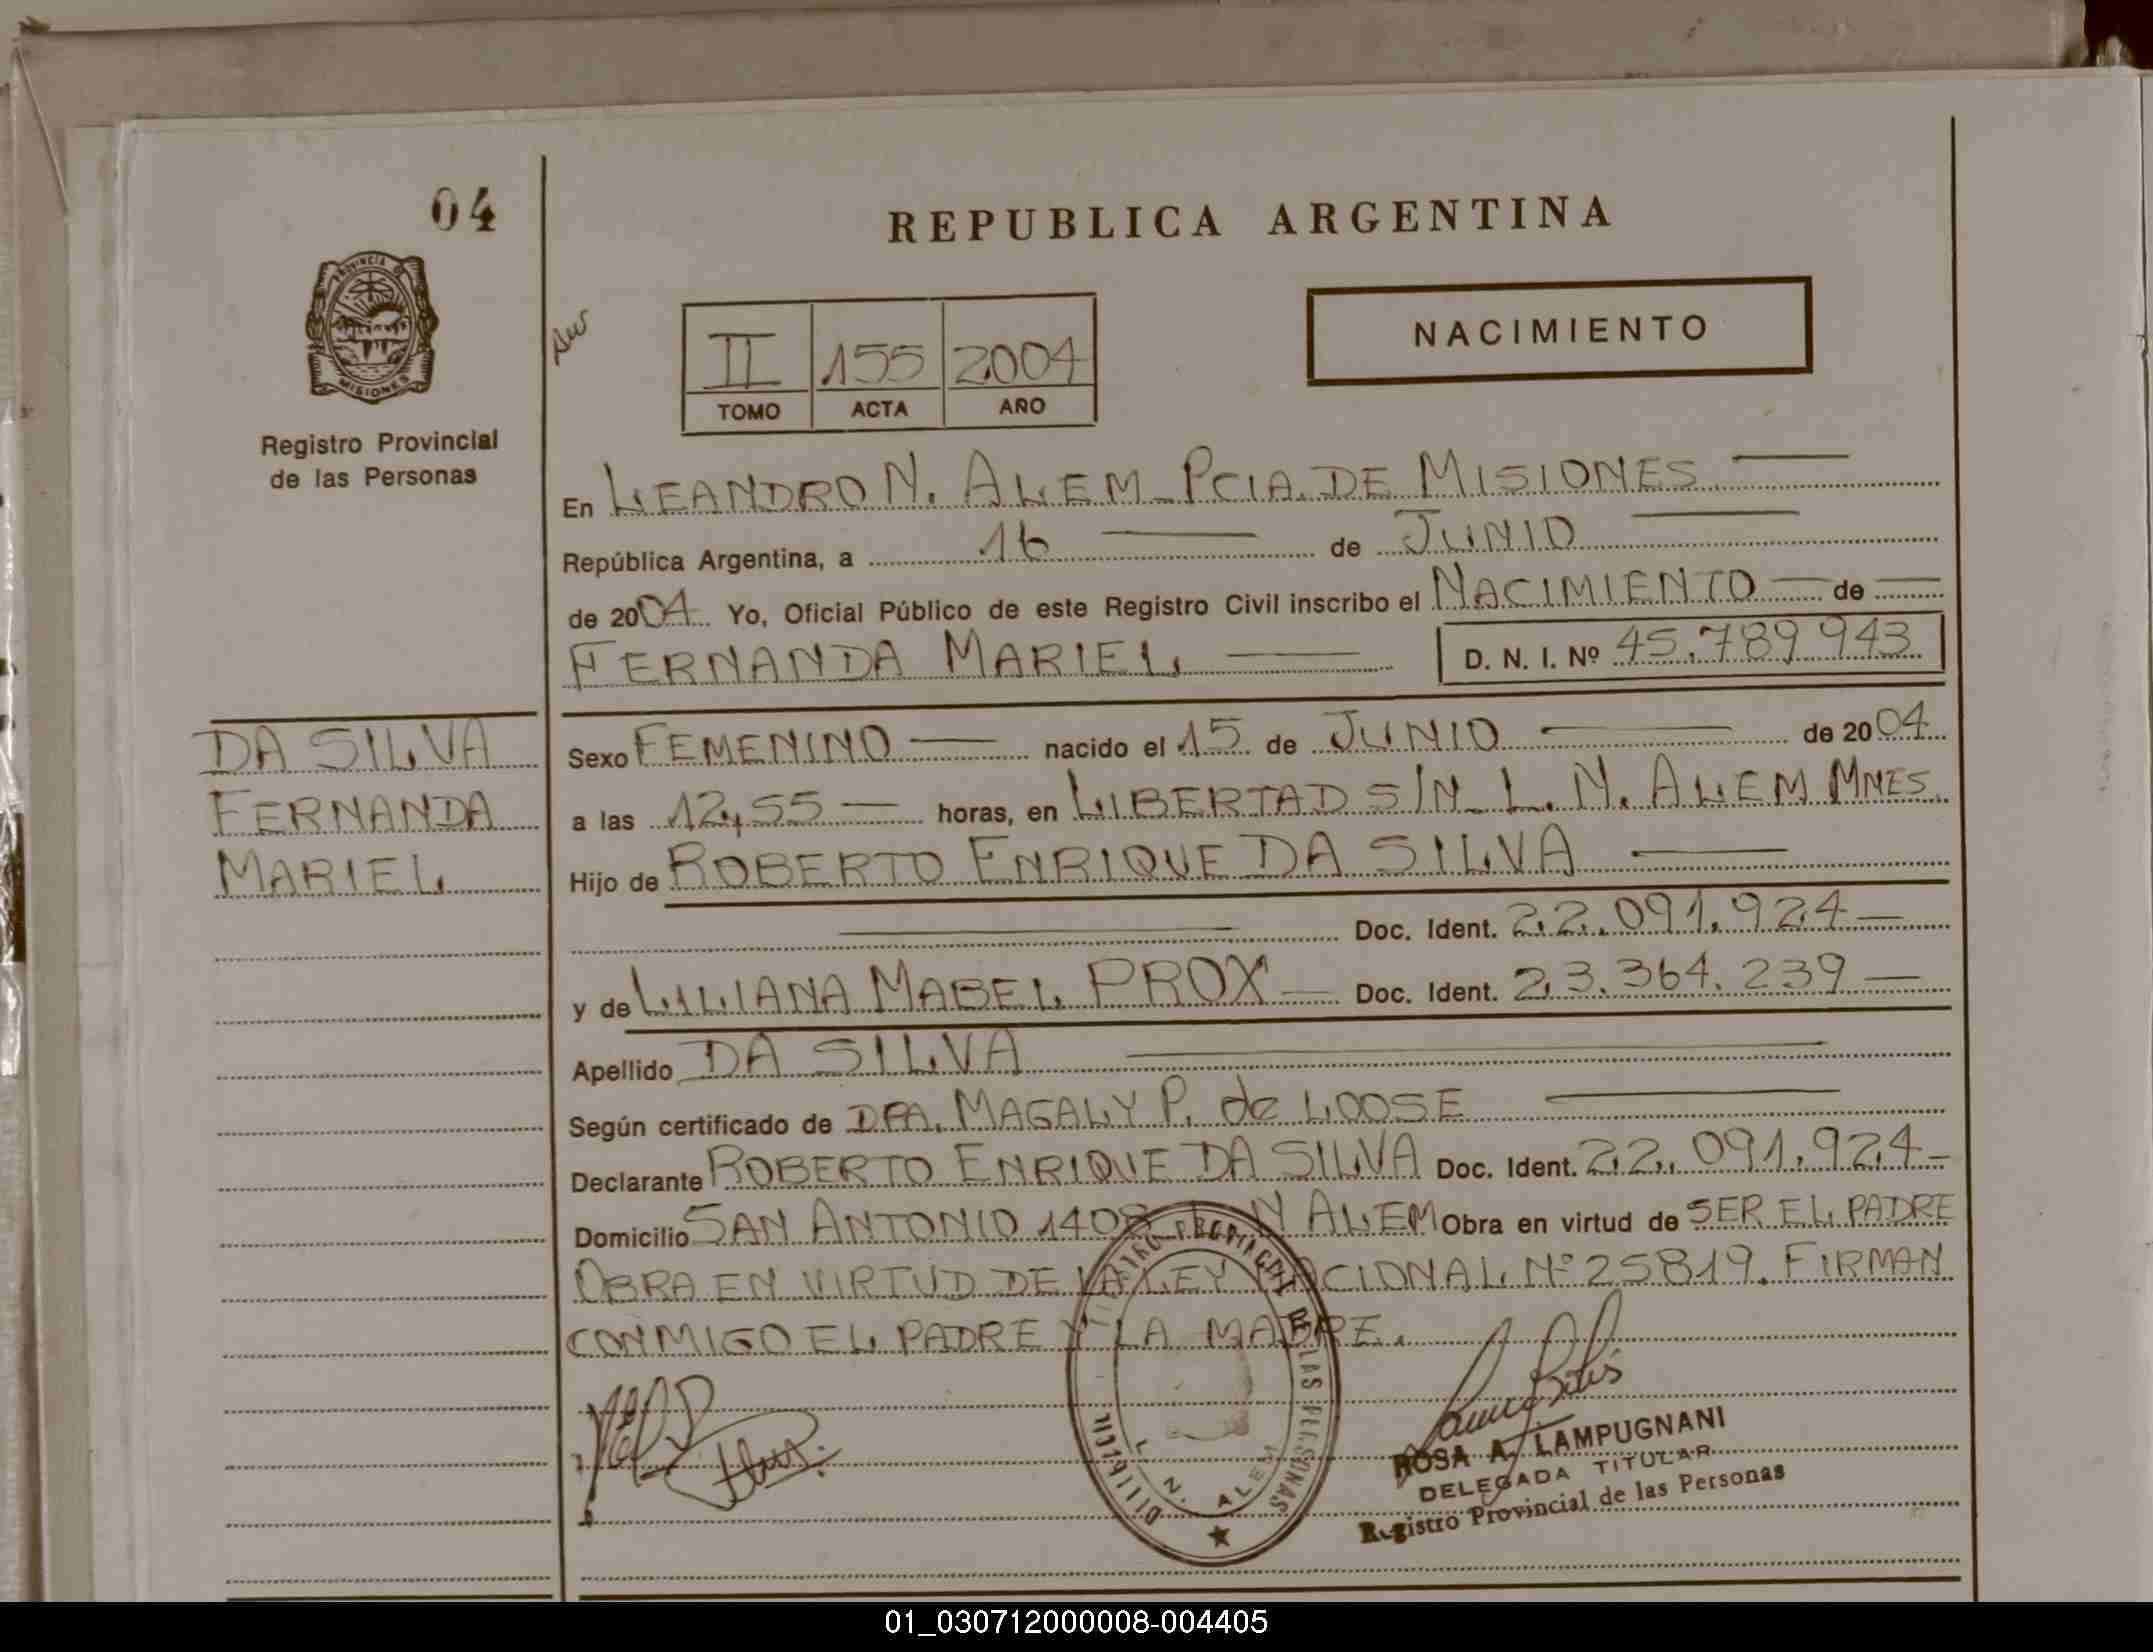 04
REPUBLICA ARGENTINA
PROVINCIA DE
MISIONES
Registro Provincial
de las Personas
II 155 2004
TOMO ACTA AÑO
NACIMIENTO
En LEANDRO N. ALEM - PCIA. DE MISIONES
República Argentina, a 16 de JUNIO
de 2004 Yo, Oficial Público de este Registro Civil inscribo el NACIMIENTO de
FERNANDA MARIEL D. N. I. Nº 45.789943
DA SILVA
FERNANDA
MARIEL
Sexo FEMENINO nacido el 15 de JUNIO de 2004
a las 12,55 horas, en LIBERTAD S/N - L. N. ALEM MNES.
Hijo de ROBERTO ENRIQUE DA SILVA
Doc. Ident. 22.091.924
y de LILIANA MABEL PROX Doc. Ident. 23.364.239
Apellido DA SILVA
Según certificado de DRA. MAGALY P. de LOOSE
Declarante ROBERTO ENRIQUE DA SILVA Doc. Ident. 22.091.924
Domicilio SAN ANTONIO 1408 L N ALEM Obra en virtud de SER EL PADRE
OBRA EN VIRTUD DE LA LEY NACIONAL Nº 25819. FIRMAN
CONMIGO EL PADRE Y LA MADRE.
REGISTRO PROVINCIAL DE LAS PERSONAS
L. N. ALEM
ROSA A. LAMPUGNANI
DELEGADA TITULAR
Registro Provincial de las Personas
01_030712000008-004405